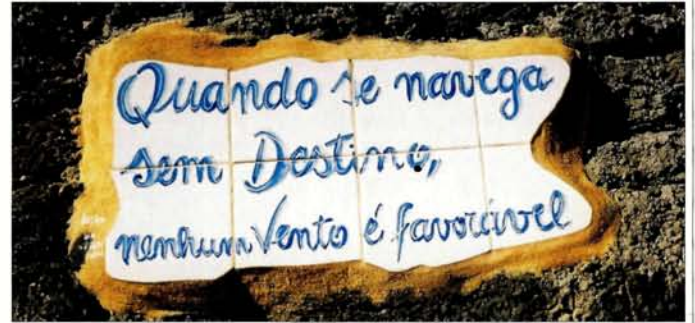 Quando se navega
sem Destino,
nenhum Vento é favorável